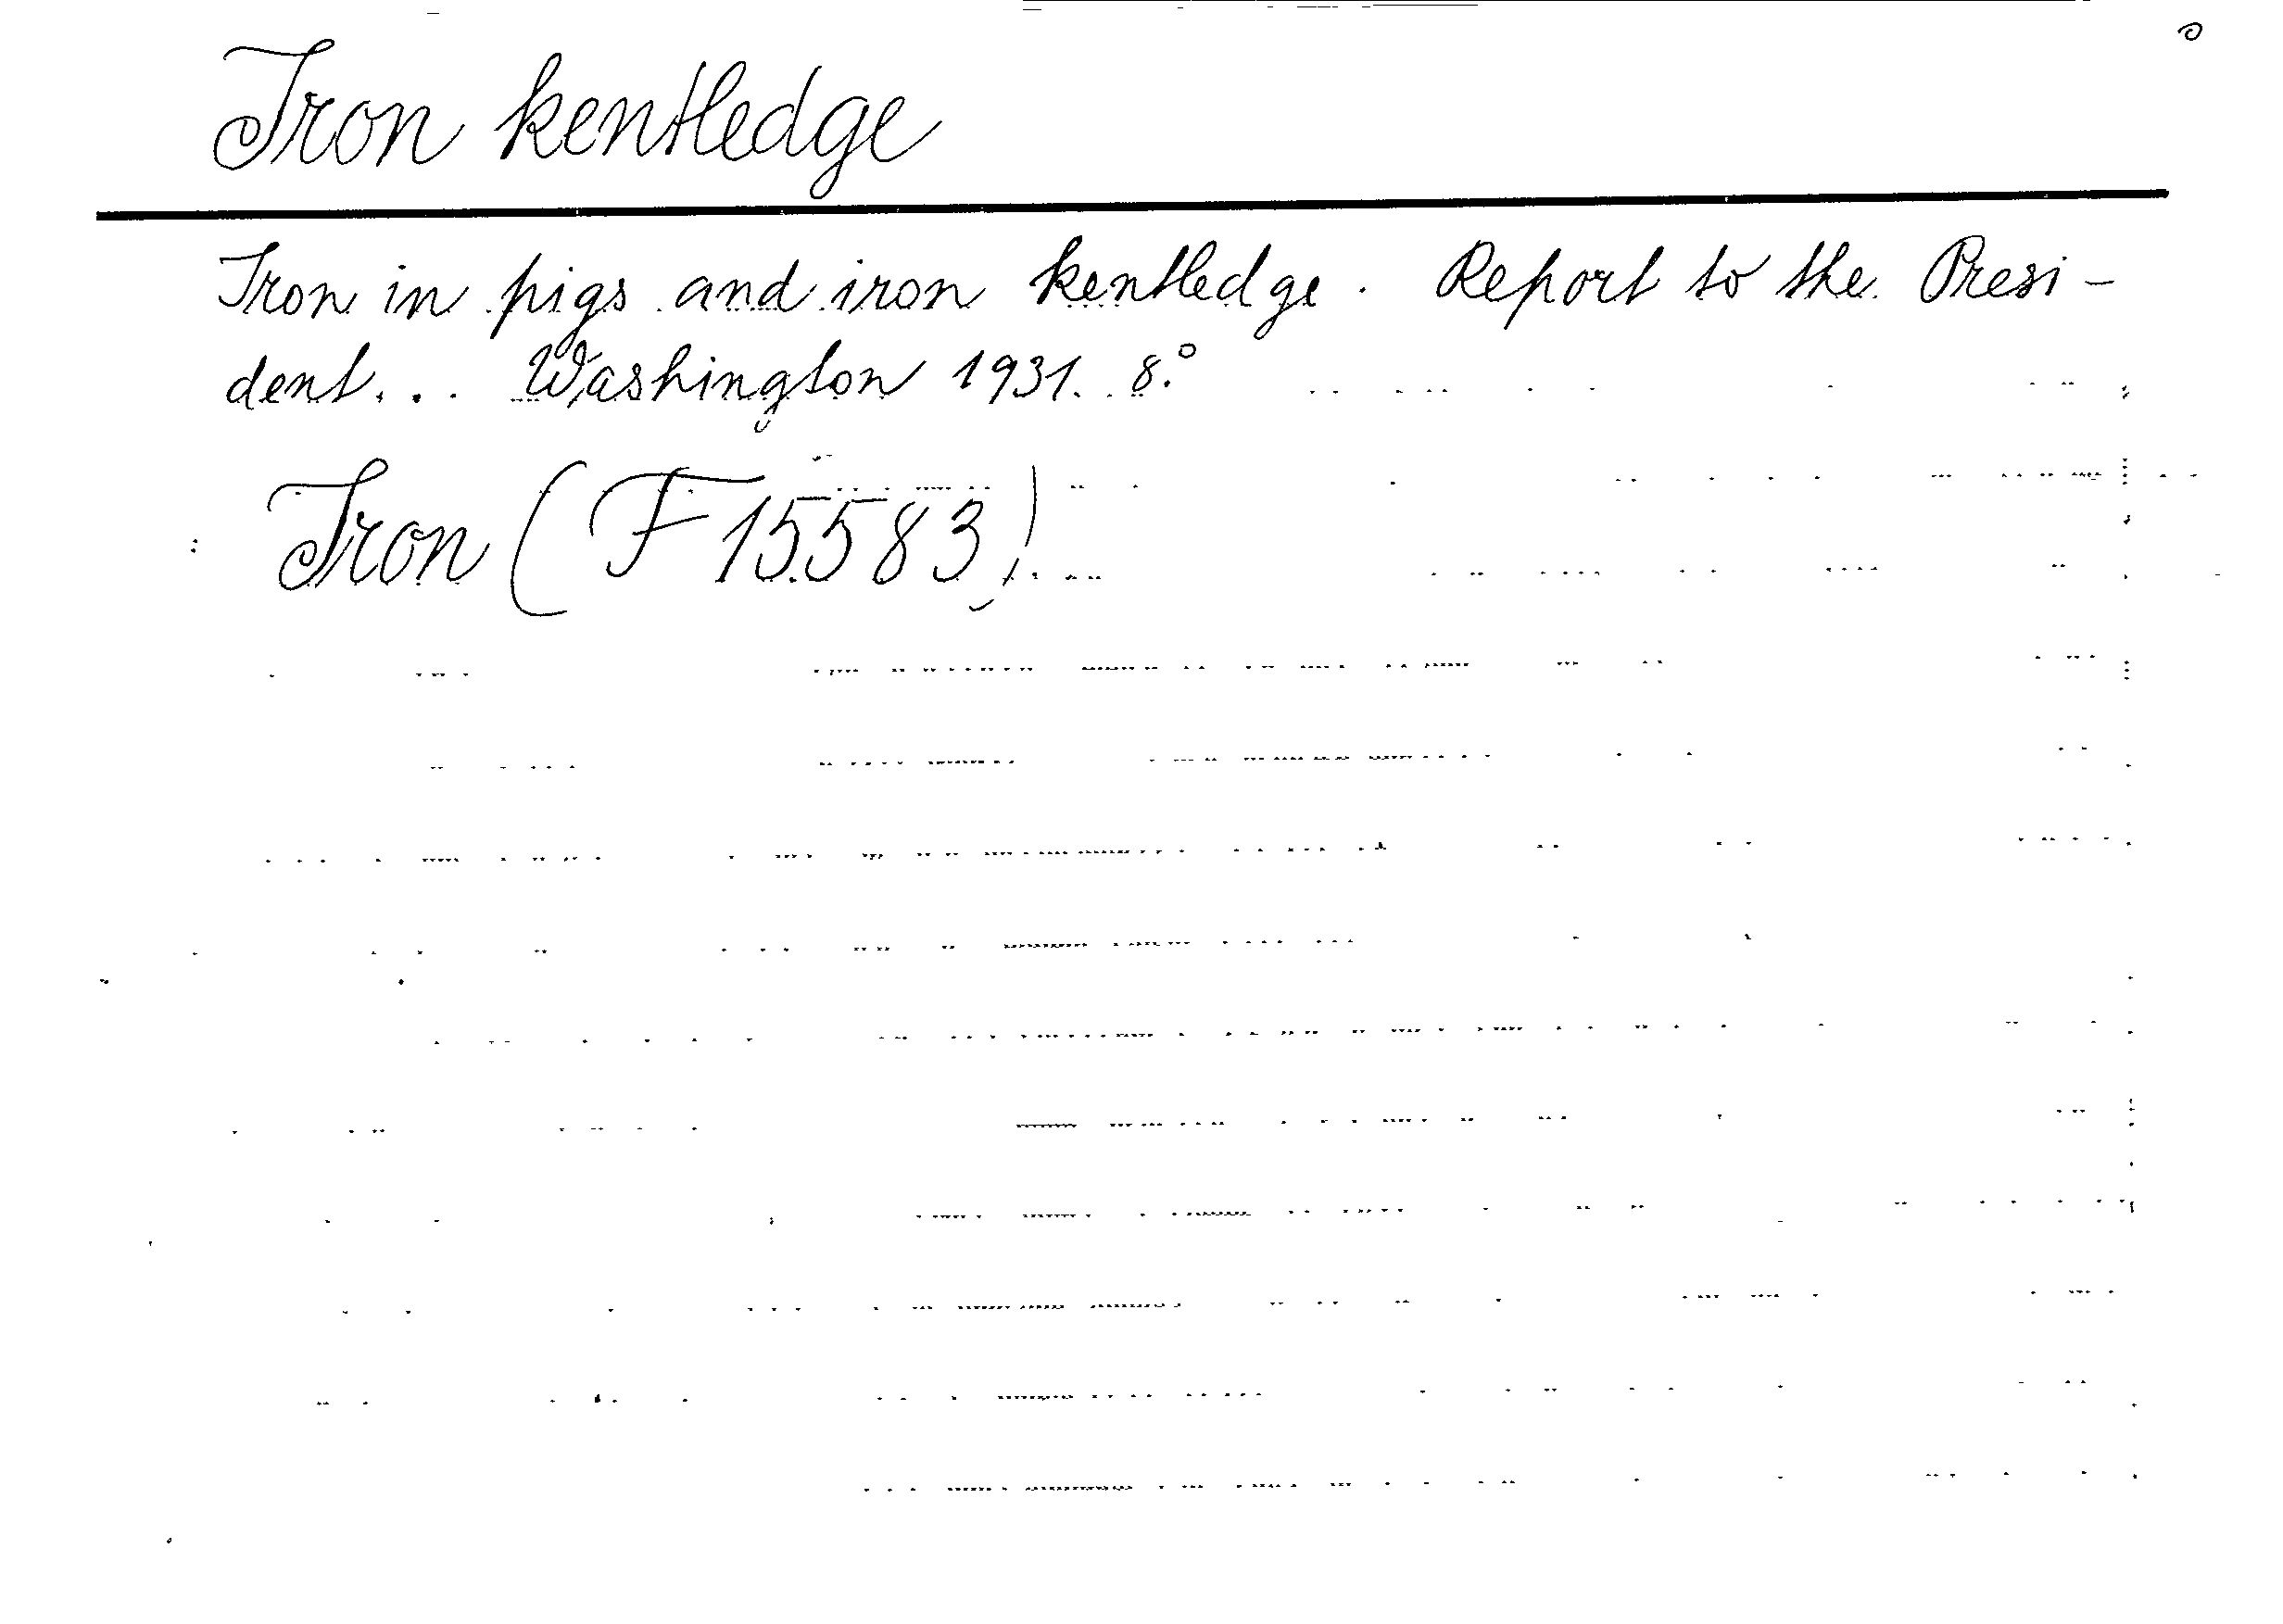 Iron kentledge
Iron in pigs and iron kentledge. Report to the Presi-
dent... Washington 1931. 8.°
Iron (F 15583)